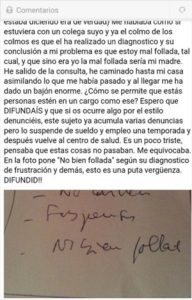 Comentarios
estaba diciendo era de verdad) Me hablaba como si
estuviera con un colega suyo y ya el colmo de los
colmos es que el ha realizado un diagnostico y su
conclusión a mi problema es que estoy mal follada, tal
cual, y que sino era yo la mal follada sería mi madre.
He salido de la consulta, he caminado hasta mi casa
asimilando lo que me había pasado y al llegar me ha
dado un bajón enorme. ¿Cómo se permite que estás
personas estén en un cargo como ese? Espero que
DIFUNDAÍS y que si os ocurre algo por el estilo
denunciéis, este sujeto ya acumula varias denuncias
pero lo suspende de sueldo y empleo una temporada y
después vuelve al centro de salud. Es un poco triste,
pensaba que estas cosas no pasaban. Me equivocaba.
En la foto pone "No bien follada" según su diagnostico
de frustración y demás, esto es una puta vergüenza.
DIFUNDID!!
- No
- No bien follad